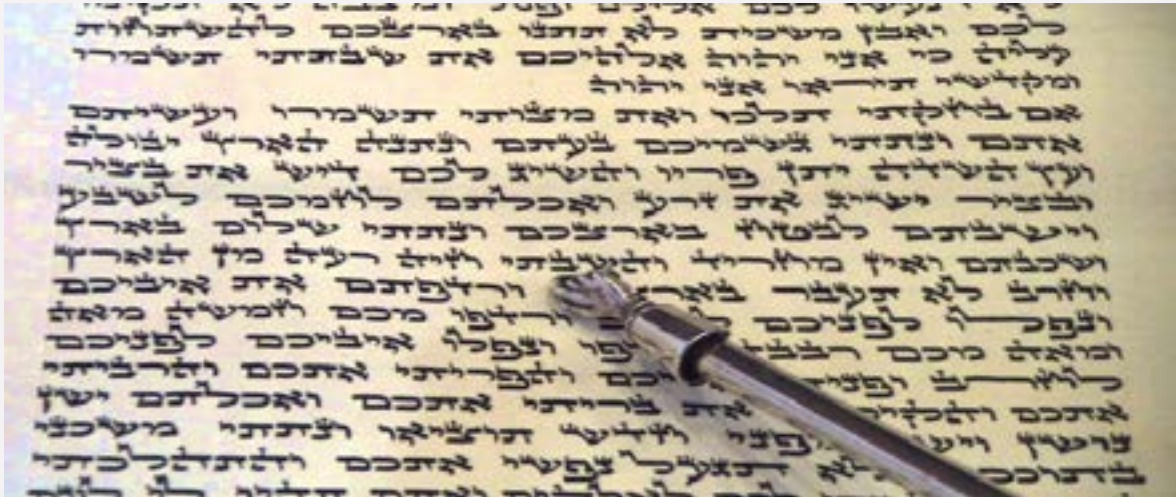 לא תעשו לכם אלילם ופסל ומצבה לא תקימו
לכם ואבן משכית לא תתנו בארצכם להשתחות
עליה כי אני יהוה אלהיכם את שבתתי תשמרו
ומקדשי תיראו אני יהוה
אם בחקתי תלכו ואת מצותי תשמרו ועשיתם
אתם ונתתי גשמיכם בעתם ונתנה הארץ יבולה
ועץ השדה יתן פריו והשיג לכם דיש את בציר
ובציר ישיג את זרע ואכלתם לחמכם לשבע
וישבתם לבטח בארצכם ונתתי שלום בארץ
ושכבתם ואין מחריד והשבתי חיה רעה מן הארץ
וחרב לא תעבר ורדפתם את איביכם
ונפלו לפניכם ורדפו מכם חמשה מאה
ומאה מכם רבבה ונפלו איביכם לפניכם
לחרב והפריתי אתכם והרביתי
אתכם את בריתי אתכם ואכלתם ישן
נושן חדש תוציאו ונתתי משכני
בתוככם תגעל נפשי אתכם והתהלכתי